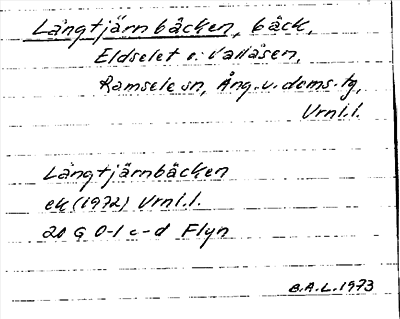 Långtjärnbäcken, bäck,
Eldselet o. Vallåsen,
Ramsele sn, Ång. v. doms. tg,
Vrnl.l.
Långtjärnbäcken
ek (1972) Vrnl.l.
20 G 0-1 c-d Flyn
B.A.L. 1973